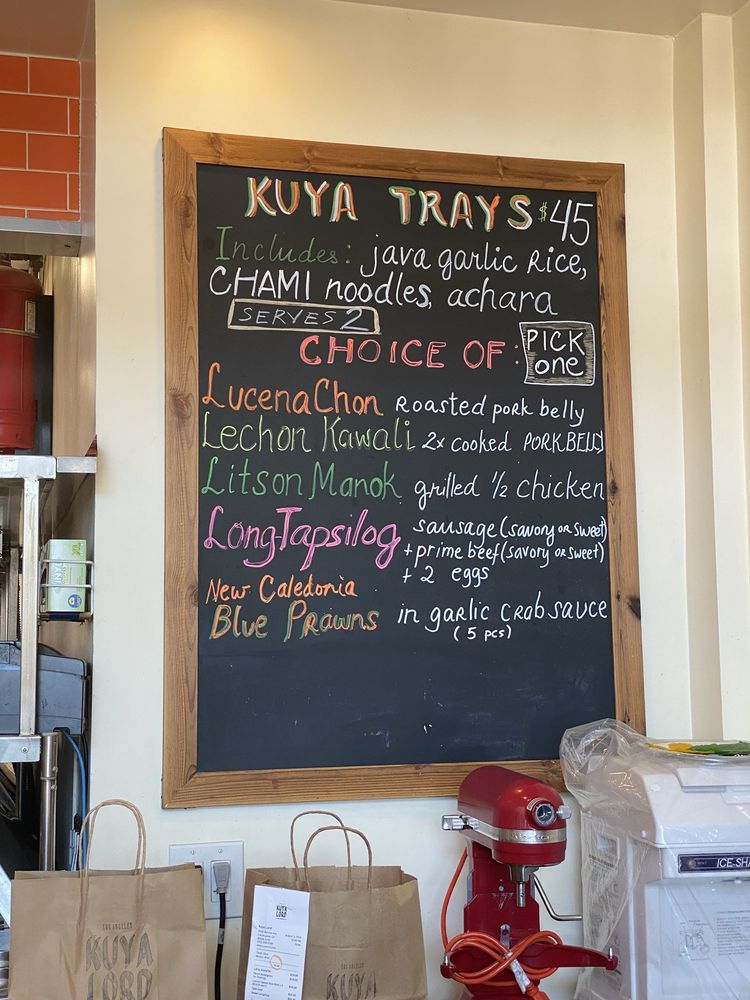 KUYA TRAYS $45
Includes: java garlic Rice,
CHAMI noodles, achara
SERVES 2
CHOICE OF: PICK one
LucenaChon Roasted pork belly
Lechon Kawali 2x cooked PORKBELLY
Litson Manok grilled 1/2 chicken
LongTapsilog sausage (savory or sweet)
+ prime beef (savory or sweet)
+ 2 eggs
New Caledonia
Blue Prawns in garlic crab sauce
(5 pcs)
LOS ANGELES
KUYA
LORD
KUYA
LORD
LOS ANGELES
KUYA
ICE-SHA